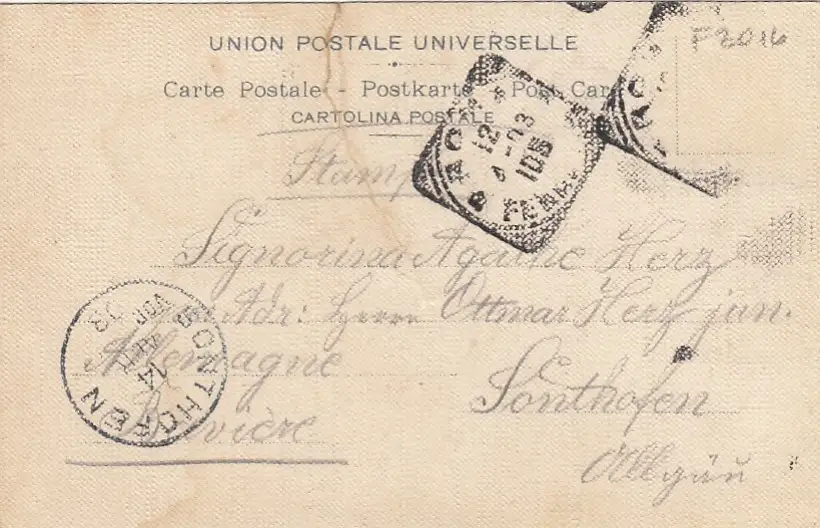 F2016
UNION POSTALE UNIVERSELLE
Carte Postale - Postkarte - Post Car
CARTOLINA POSTALE
12
4-03
10S
FERR.
Stamp
Signorina Agathe Herz
Adr: Herrn Ottmar Herz jun.
Allemagne
Sonthofen
Bavière
Allgäu
SONTHOFEN
VOR
14